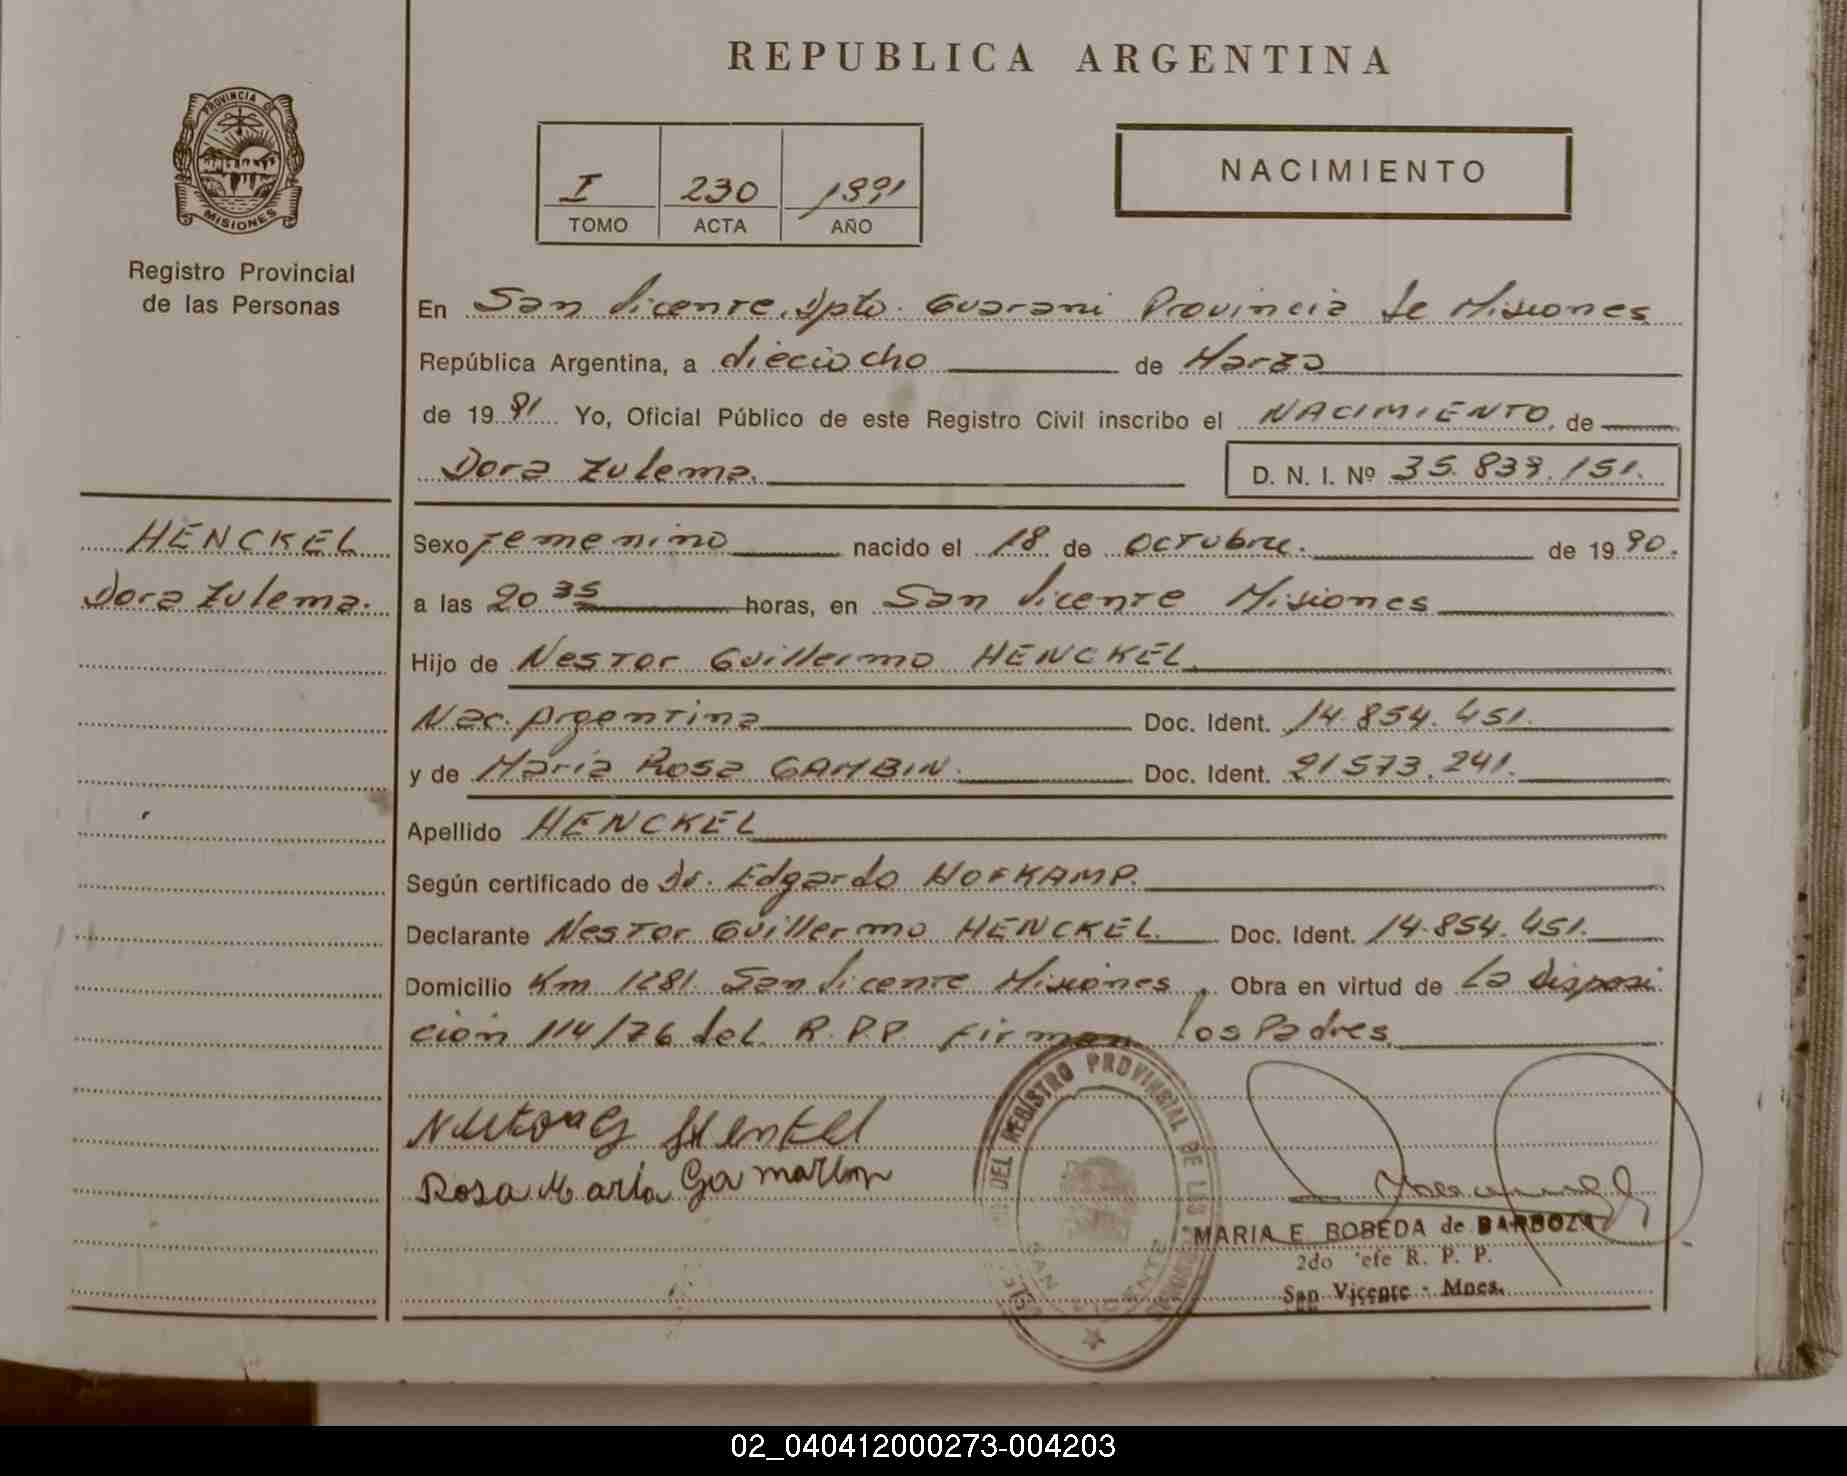 REPUBLICA ARGENTINA
PROVINCIA DE
MISIONES
Registro Provincial
de las Personas
I 230 1991
TOMO ACTA AÑO
NACIMIENTO
En San Vicente, Dpto. Guarani Provincia de Misiones
República Argentina, a dieciocho de Marzo
de 19 91 Yo, Oficial Público de este Registro Civil inscribo el NACIMIENTO, de
Dora Zulema. D. N. I. Nº 35.839.151.
HENCKEL
Dora Zulema.
Sexo Femenino nacido el 18 de Octubre. de 19 90.
a las 20 35 horas, en San Vicente Misiones
Hijo de Nestor Guillermo HENCKEL
Nac. Argentina Doc. Ident. 14.854.451.
y de Maria Rosa GAMBIN. Doc. Ident. 21573.241.
Apellido HENCKEL
Según certificado de Dr. Edgardo HOFKAMP.
Declarante Nestor Guillermo HENCKEL. Doc. Ident. 14.854.451.
Domicilio Km 1281 San Vicente Misiones. Obra en virtud de La Disposi
ción 114/76 del R.P.P. Firman los Padres
Rosa Maria
DEL REGISTRO PROVINCIAL DE LAS
SAN VICENTE
MARIA E. BOBEDA de BARBOZA
2do Jefe R. P. P.
San Vicente - Mnes.
02_040412000273-004203